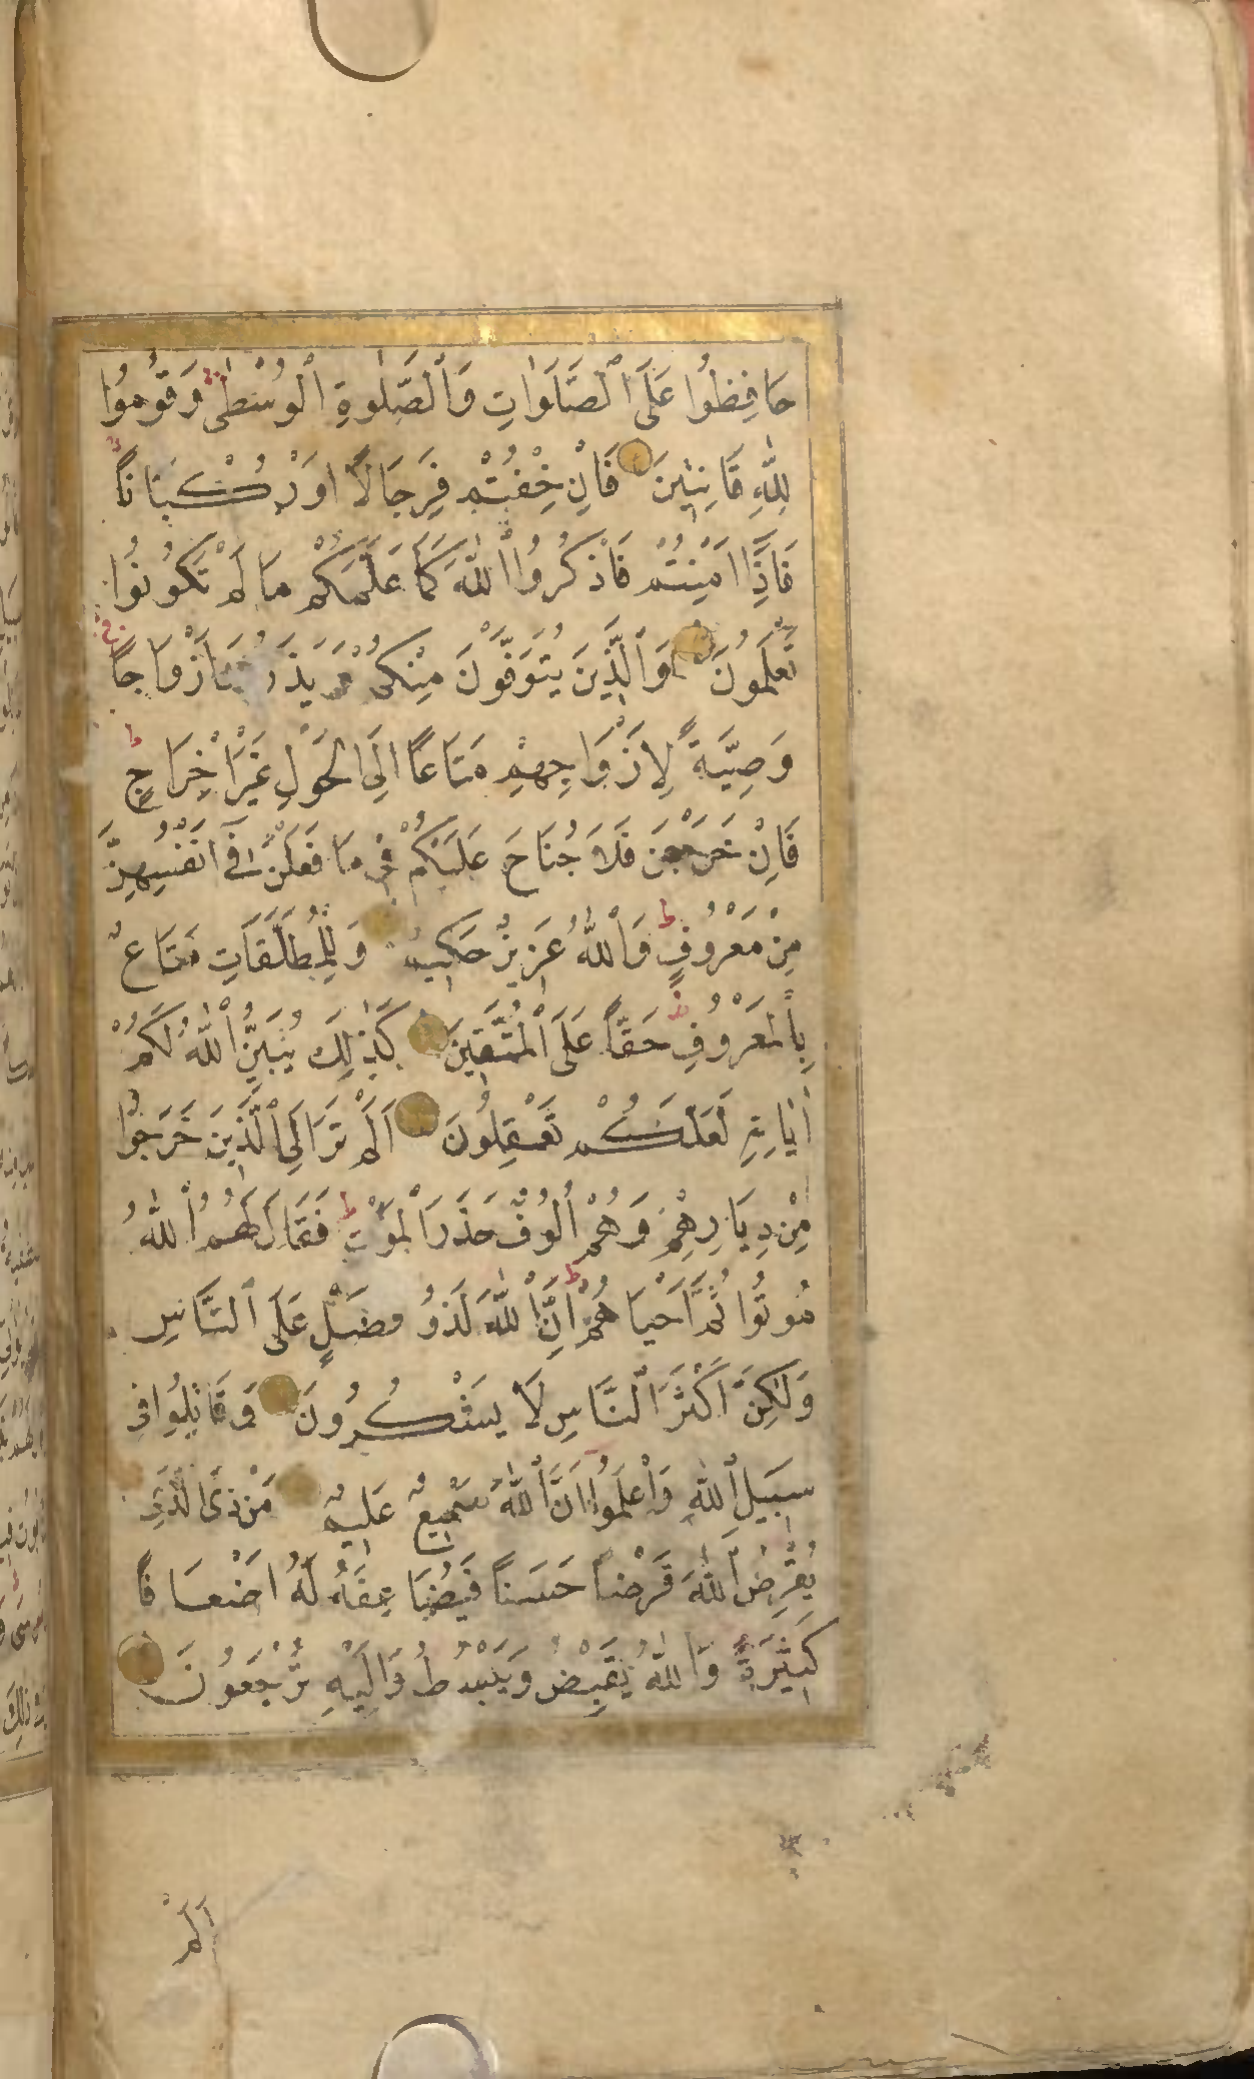 حَافِظُوا عَلَى ٱلصَّلَوَاتِ وَٱلصَّلٰوةِ ٱلْوُسْطٰى وَقُومُوا
لِلّٰهِ قَانِتِينَ فَاِنْ خِفْتُمْ فَرِجَالًا اَوْ رُكْبَانًا
فَاِذَا اَمِنْتُمْ فَاذْكُرُوا ٱللّٰهَ كَمَا عَلَّمَكُمْ مَا لَمْ تَكُونُوا
تَعْلَمُونَ وَٱلَّذِينَ يُتَوَفَّوْنَ مِنْكُمْ وَيَذَرُونَ اَزْوَاجًا
وَصِيَّةً لِاَزْوَاجِهِمْ مَتَاعًا اِلَى الْحَوْلِ غَيْرَ اِخْرَاجٍ
فَاِنْ خَرَجْنَ فَلَا جُنَاحَ عَلَيْكُمْ فِى مَا فَعَلْنَ فِٓى اَنْفُسِهِنَّ
مِنْ مَعْرُوفٍ وَٱللّٰهُ عَزِيزٌ حَكِيمٌ وَلِلْمُطَلَّقَاتِ مَتَاعٌ
بِٱلْمَعْرُوفِ حَقًّا عَلَى ٱلْمُتَّقِينَ كَذٰلِكَ يُبَيِّنُ ٱللّٰهُ لَكُمْ
اٰيَاتِهِ لَعَلَّكُمْ تَعْقِلُونَ اَلَمْ تَرَ اِلَى ٱلَّذِينَ خَرَجُوا
مِنْ دِيَارِهِمْ وَهُمْ اُلُوفٌ حَذَرَ ٱلْمَوْتِ فَقَالَ لَهُمُ ٱللّٰهُ
مُوتُوا ثُمَّ اَحْيَاهُمْ اِنَّ ٱللّٰهَ لَذُو فَضْلٍ عَلَى ٱلنَّاسِ
وَلٰكِنَّ اَكْثَرَ ٱلنَّاسِ لَا يَشْكُرُونَ وَقَاتِلُوا فِى
سَبِيلِ ٱللّٰهِ وَٱعْلَمُوا اَنَّ ٱللّٰهَ سَمِيعٌ عَلِيمٌ مَنْ ذَا ٱلَّذِى
يُقْرِضُ ٱللّٰهَ قَرْضًا حَسَنًا فَيُضَاعِفَهُ لَهُ اَضْعَافًا
كَثِيرَةً وَٱللّٰهُ يَقْبِضُ وَيَبْسُطُ وَاِلَيْهِ تُرْجَعُونَ
اَلَمْ